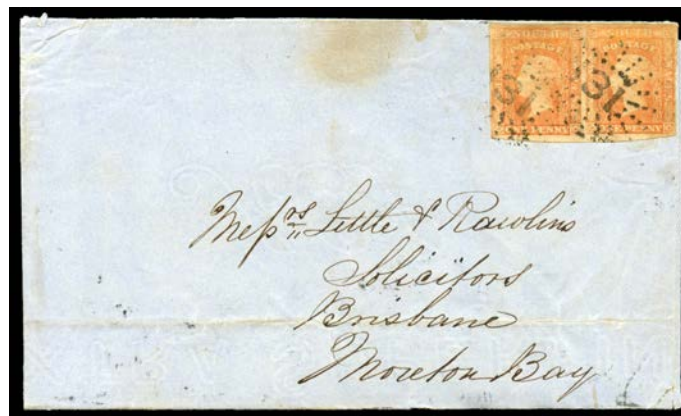 POSTAGE POSTAGE
PENNY PENNY
31 31
Mes^rs Little & Rawlins
Solicitors
Brisbane
Moreton Bay